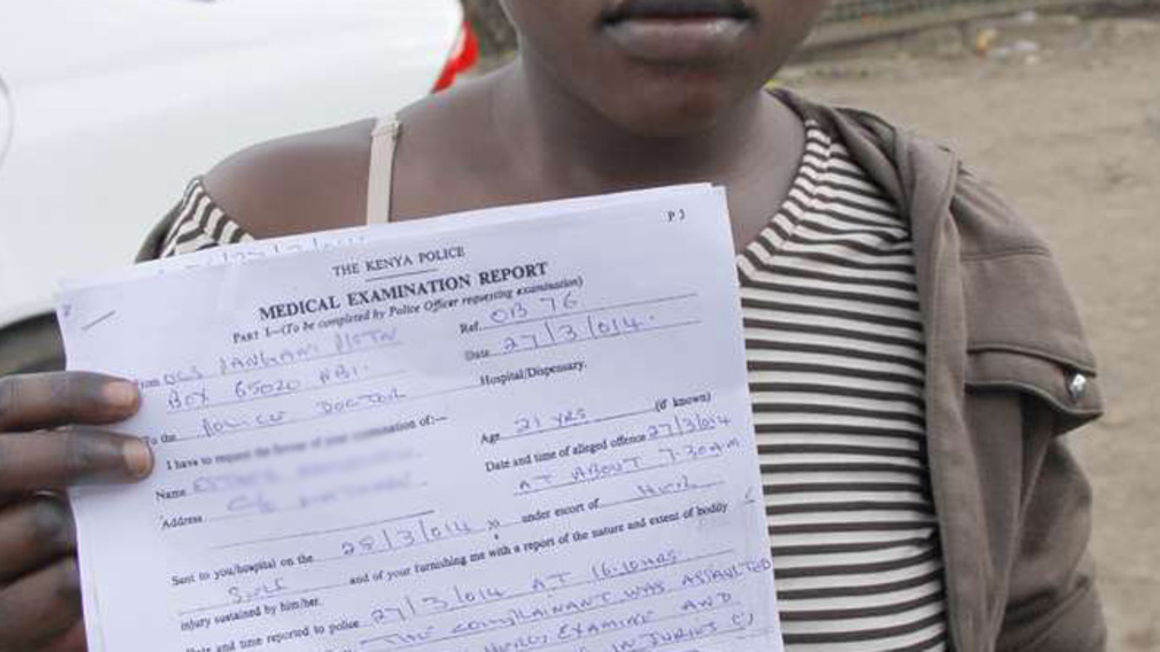 P 3
THE KENYA POLICE
MEDICAL EXAMINATION REPORT
PART I—(To be completed by Police Officer requesting examination)
Ref. OB 76
From OCS PANGANI P/STN
Date 27/3/014.
BOX 65020 NBI.
Hospital/Dispensary.
To the POLICE DOCTOR
I have to request the favour of your examination of:—
Age 21 YRS (if known)
Name
Date and time of alleged offence 27/3/014
AT ABOUT 7.30AM
Address
Sent to you/hospital on the 28/3/014 under escort of
SELF and of your furnishing me with a report of the nature and extent of bodily
injury sustained by him/her.
Date and time reported to police 27/3/014 AT 16.10HRS.
THE COMPLAINANT WAS ASSAULTED
EXAMINE AND
INJURIES